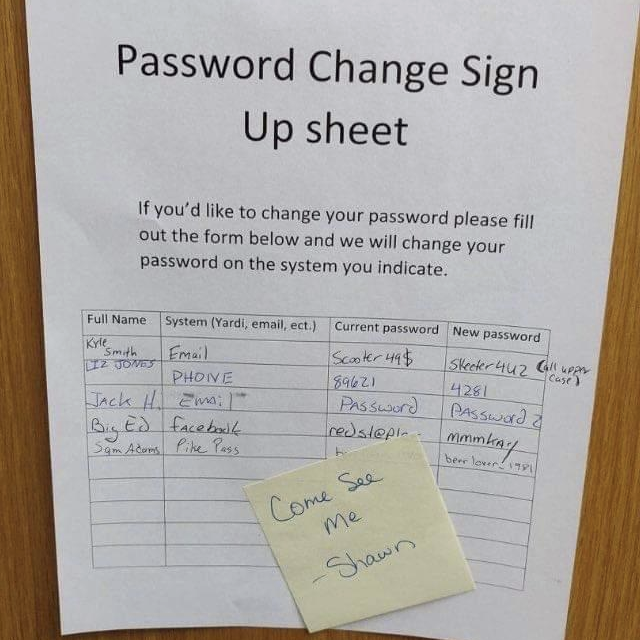 Password Change Sign
Up sheet
If you'd like to change your password please fill
out the form below and we will change your
password on the system you indicate.
Full Name System (Yardi, email, ect.) Current password New password
Kyle Smith Email Scooter 49$ Skeeter 4U2 (all upper case)
LIZ JONES PHONE 89621 4281
JACK H. Email PASSWORD PASSWORD 2
Big Ed facebook mmmkay
Sam Adams Pike Pass beer lover-1981
Come See
Me
-Shawn